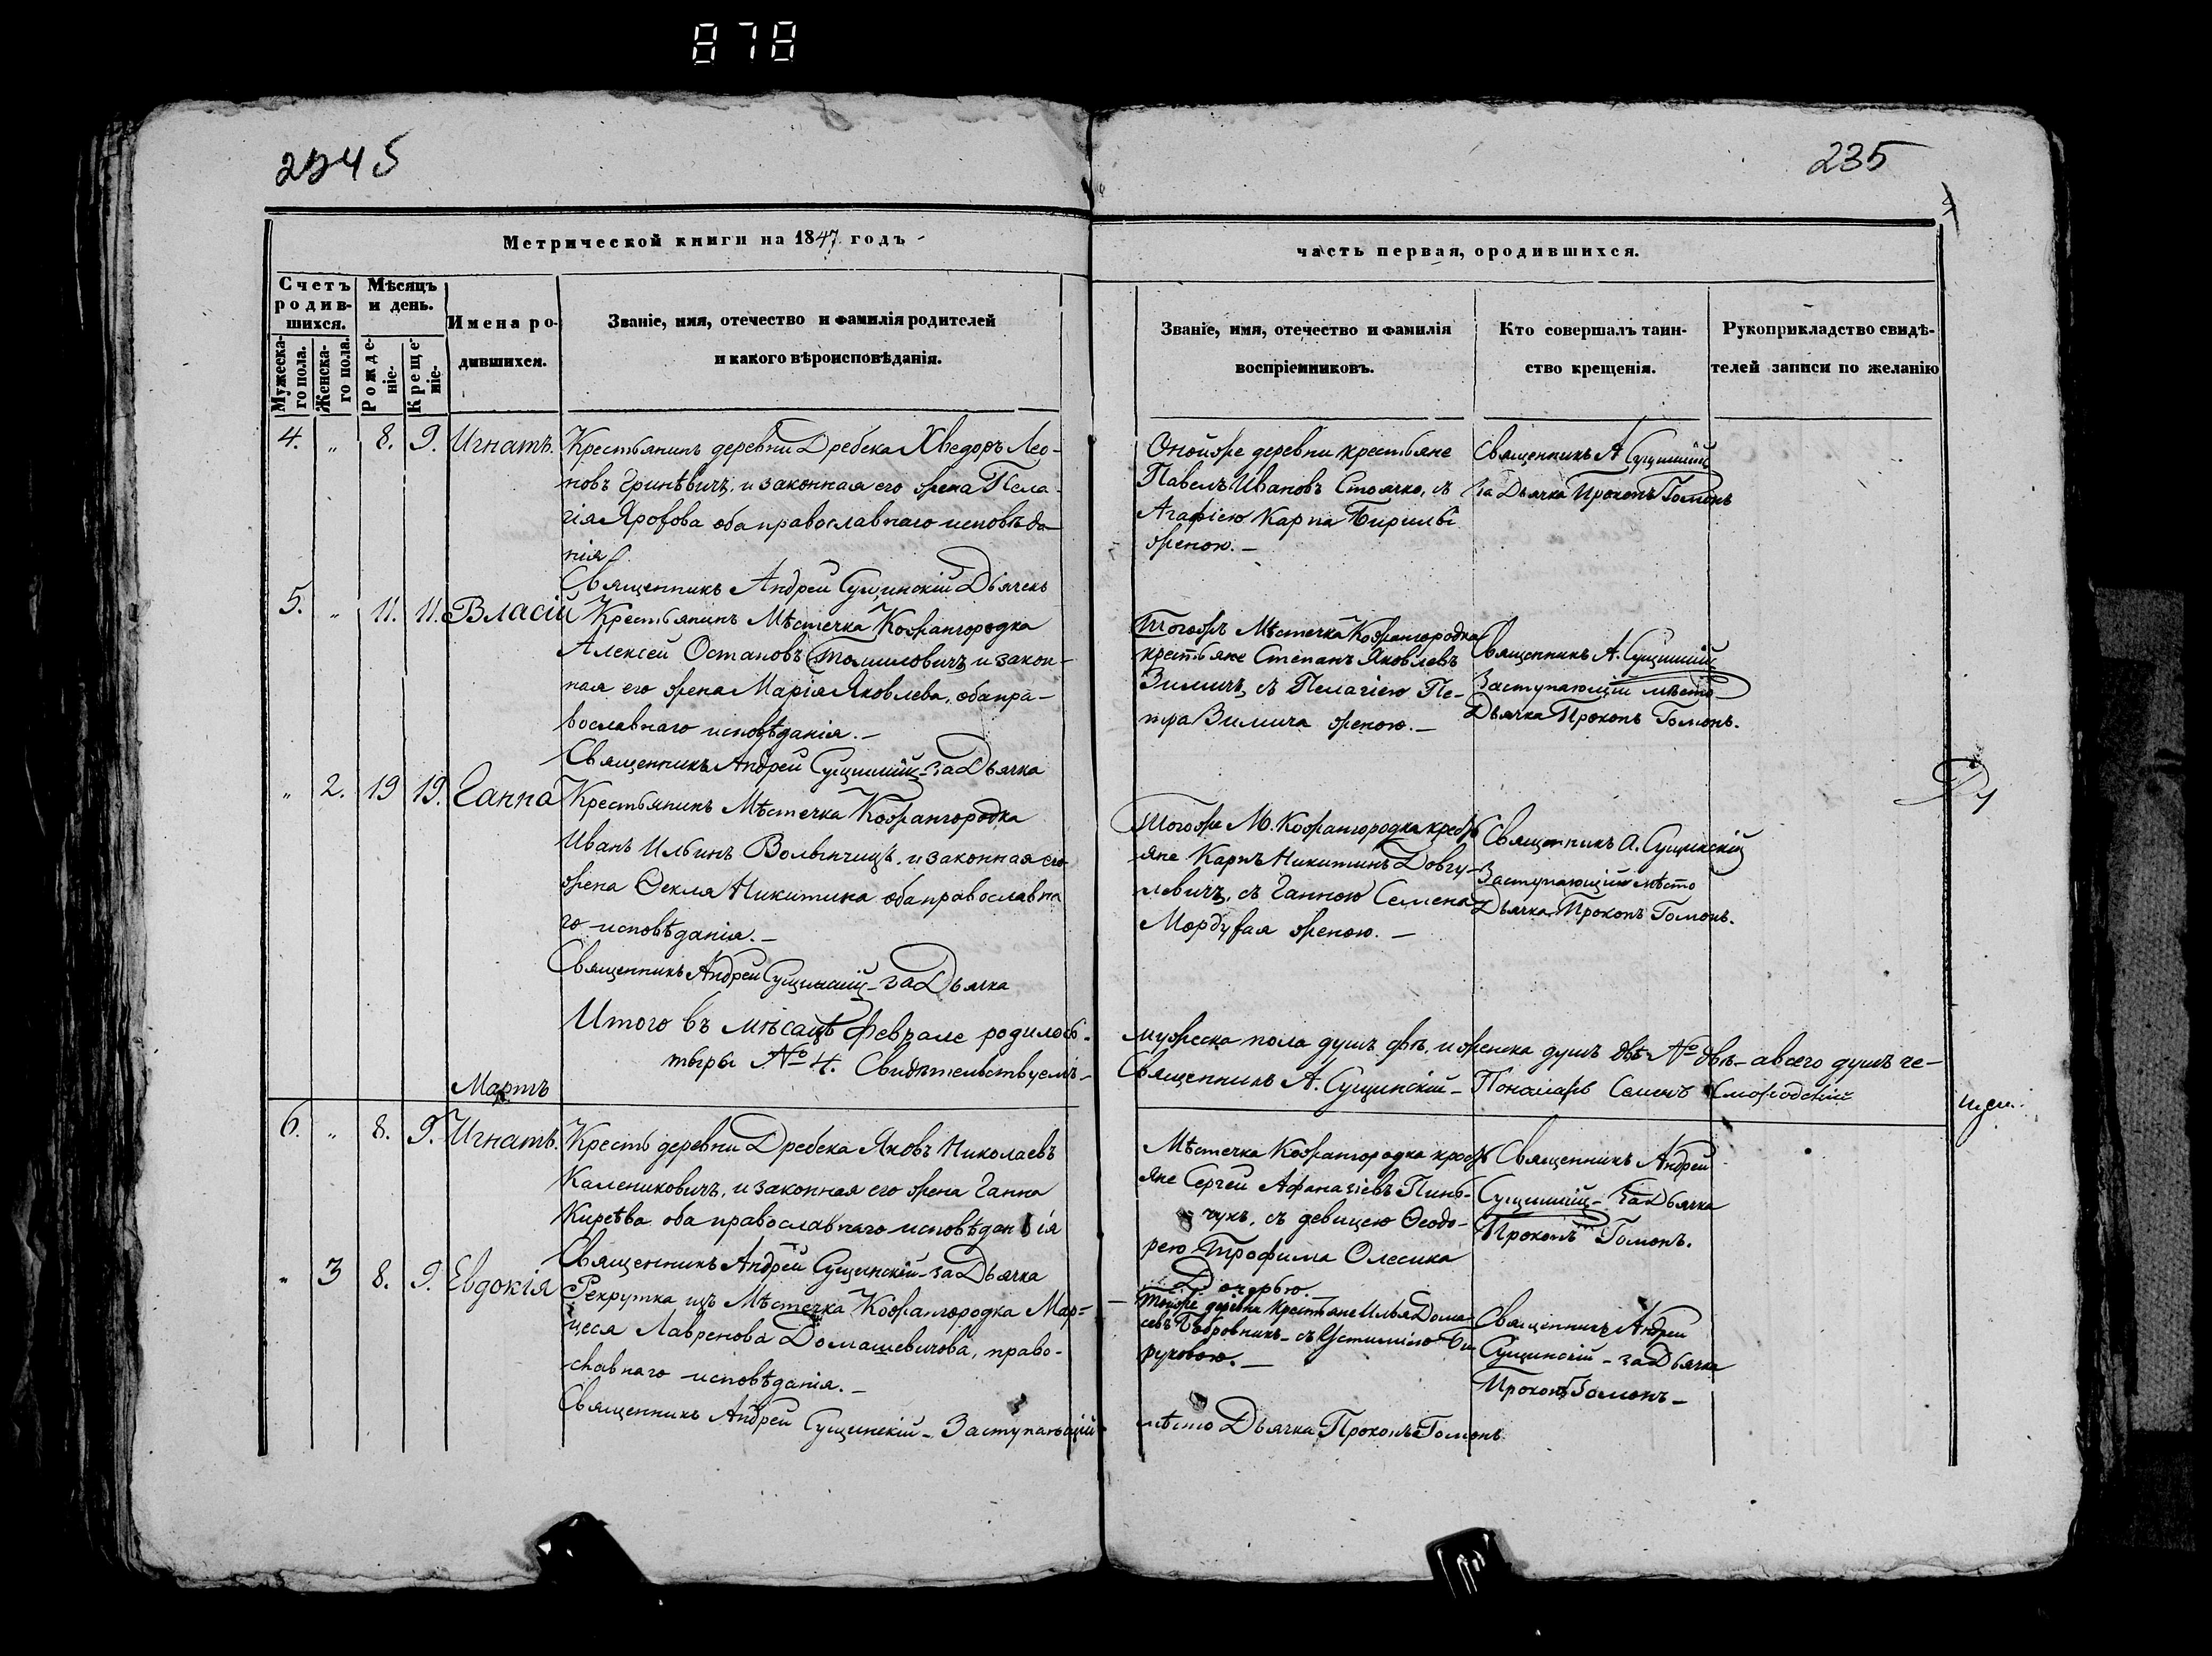 878
2245
235
Метрической книги на 1847 годъ
часть первая, ородившихся.
Счетъ родив-
шихся.
Мужеска-
го пола.
Женска-
го пола.
Мѣсяцъ
и день.
Рожде-
ніе.
Креще-
ніе.
Имена ро-
дившихся.
Званіе, имя, отечество и фамилія родителей
и какого вѣроисповѣданія.
Званіе, имя, отечество и фамилія
воспріемниковъ.
Кто совершалъ таин-
ство крещенія.
Рукоприкладство свидѣ-
телей записи по желанію
4. „ 8. 9. Игнатъ.
Крестьянинъ деревни Дребска Хведоръ Лео-
новъ Гринѣвичъ, и законная его жена Пела-
гія Ярофова оба православнаго исповѣда-
нія
Священникъ Андрей Сущинскій Дьячекъ
Онойже деревни крестьяне
Павелъ Ивановъ Стоячко, съ
Агафіею Карпа
женою. –
Священникъ А Сущинскій
за Дьячка Прокопъ Гомонъ
5. „ 11. 11. Власій
Крестьянинъ Мѣстечка Кожангородка
Алексей Остаповъ Томиловичъ и закон-
ная его жена Марія Яковлева, оба пра-
вославнаго исповѣданія. –
Священникъ Андрей Сущинскій – за Дьячка
Тогожъ Мѣстечка Кожангородка
крестьяне Степанъ Яковлевъ
Зимичъ, съ Пелагіею Пе-
тра Зимича женою. –
Священникъ А. Сущинскій
Заступающій мѣсто
Дьячка Прокопъ Гомонъ.
„ 2. 19 19. Ганна
Крестьянинъ Мѣстечка Кожангородка
Иванъ Ильинъ Волынчицъ, и законная его
жена Ѳекля Никитина оба православна
го исповѣданія. –
Священникъ Андрей Сущинскій – за Дьячка
Тогоже М. Кожангородка кресть
яне Карпъ Никитинъ Довгу-
левичъ, съ Ганною Семена
женою. –
Священникъ А. Сущинскій
Заступающій мѣсто
Дьячка Прокопъ Гомонъ.
Итого въ мѣсацѣ Феврале родилось
мужеска пола душъ двѣ, и женска душъ двѣ № двѣ – а всего душъ че-
тыры № 4. Свидѣтельствуемъ –
Священникъ А. Сущинскій – Пономарь Семенъ
Мартъ
6. „ 8. 9. Игнатъ.
Кресть деревни Дребска Яковъ Николаевъ
Калениковичъ, и законная его жена Ганна
Кирѣева оба православнаго исповѣданія
Священникъ Андрей Сущинскій – за Дьячка
Мѣстечка Кожангородка кресть
яне Сергей Афанасіевъ Пинь-
чукъ, съ девицею Ѳеодо-
рею Трофима Олесика
Дочерью. –
Священникъ Андрей
Сущинскій – за Дьячка
Прокопъ Гомонъ.
„ 3 8. 9. Евдокія
Рекрутка изъ Мѣстечка Кожангородка Мар=
цеся Лавренова Домашевичова, право-
славнаго исповѣданія. –
Священникъ Андрей Сущинскій – Заступающій
мѣсто Дьячка Прокопъ Гомонъ
Тойже деревни Крестьяне Илья Дома
севъ Бобровникъ – съ Устиміею
руковою. –
Священникъ Андрей
Сущинскій – за Дьячка
Прокопъ Гомонъ –